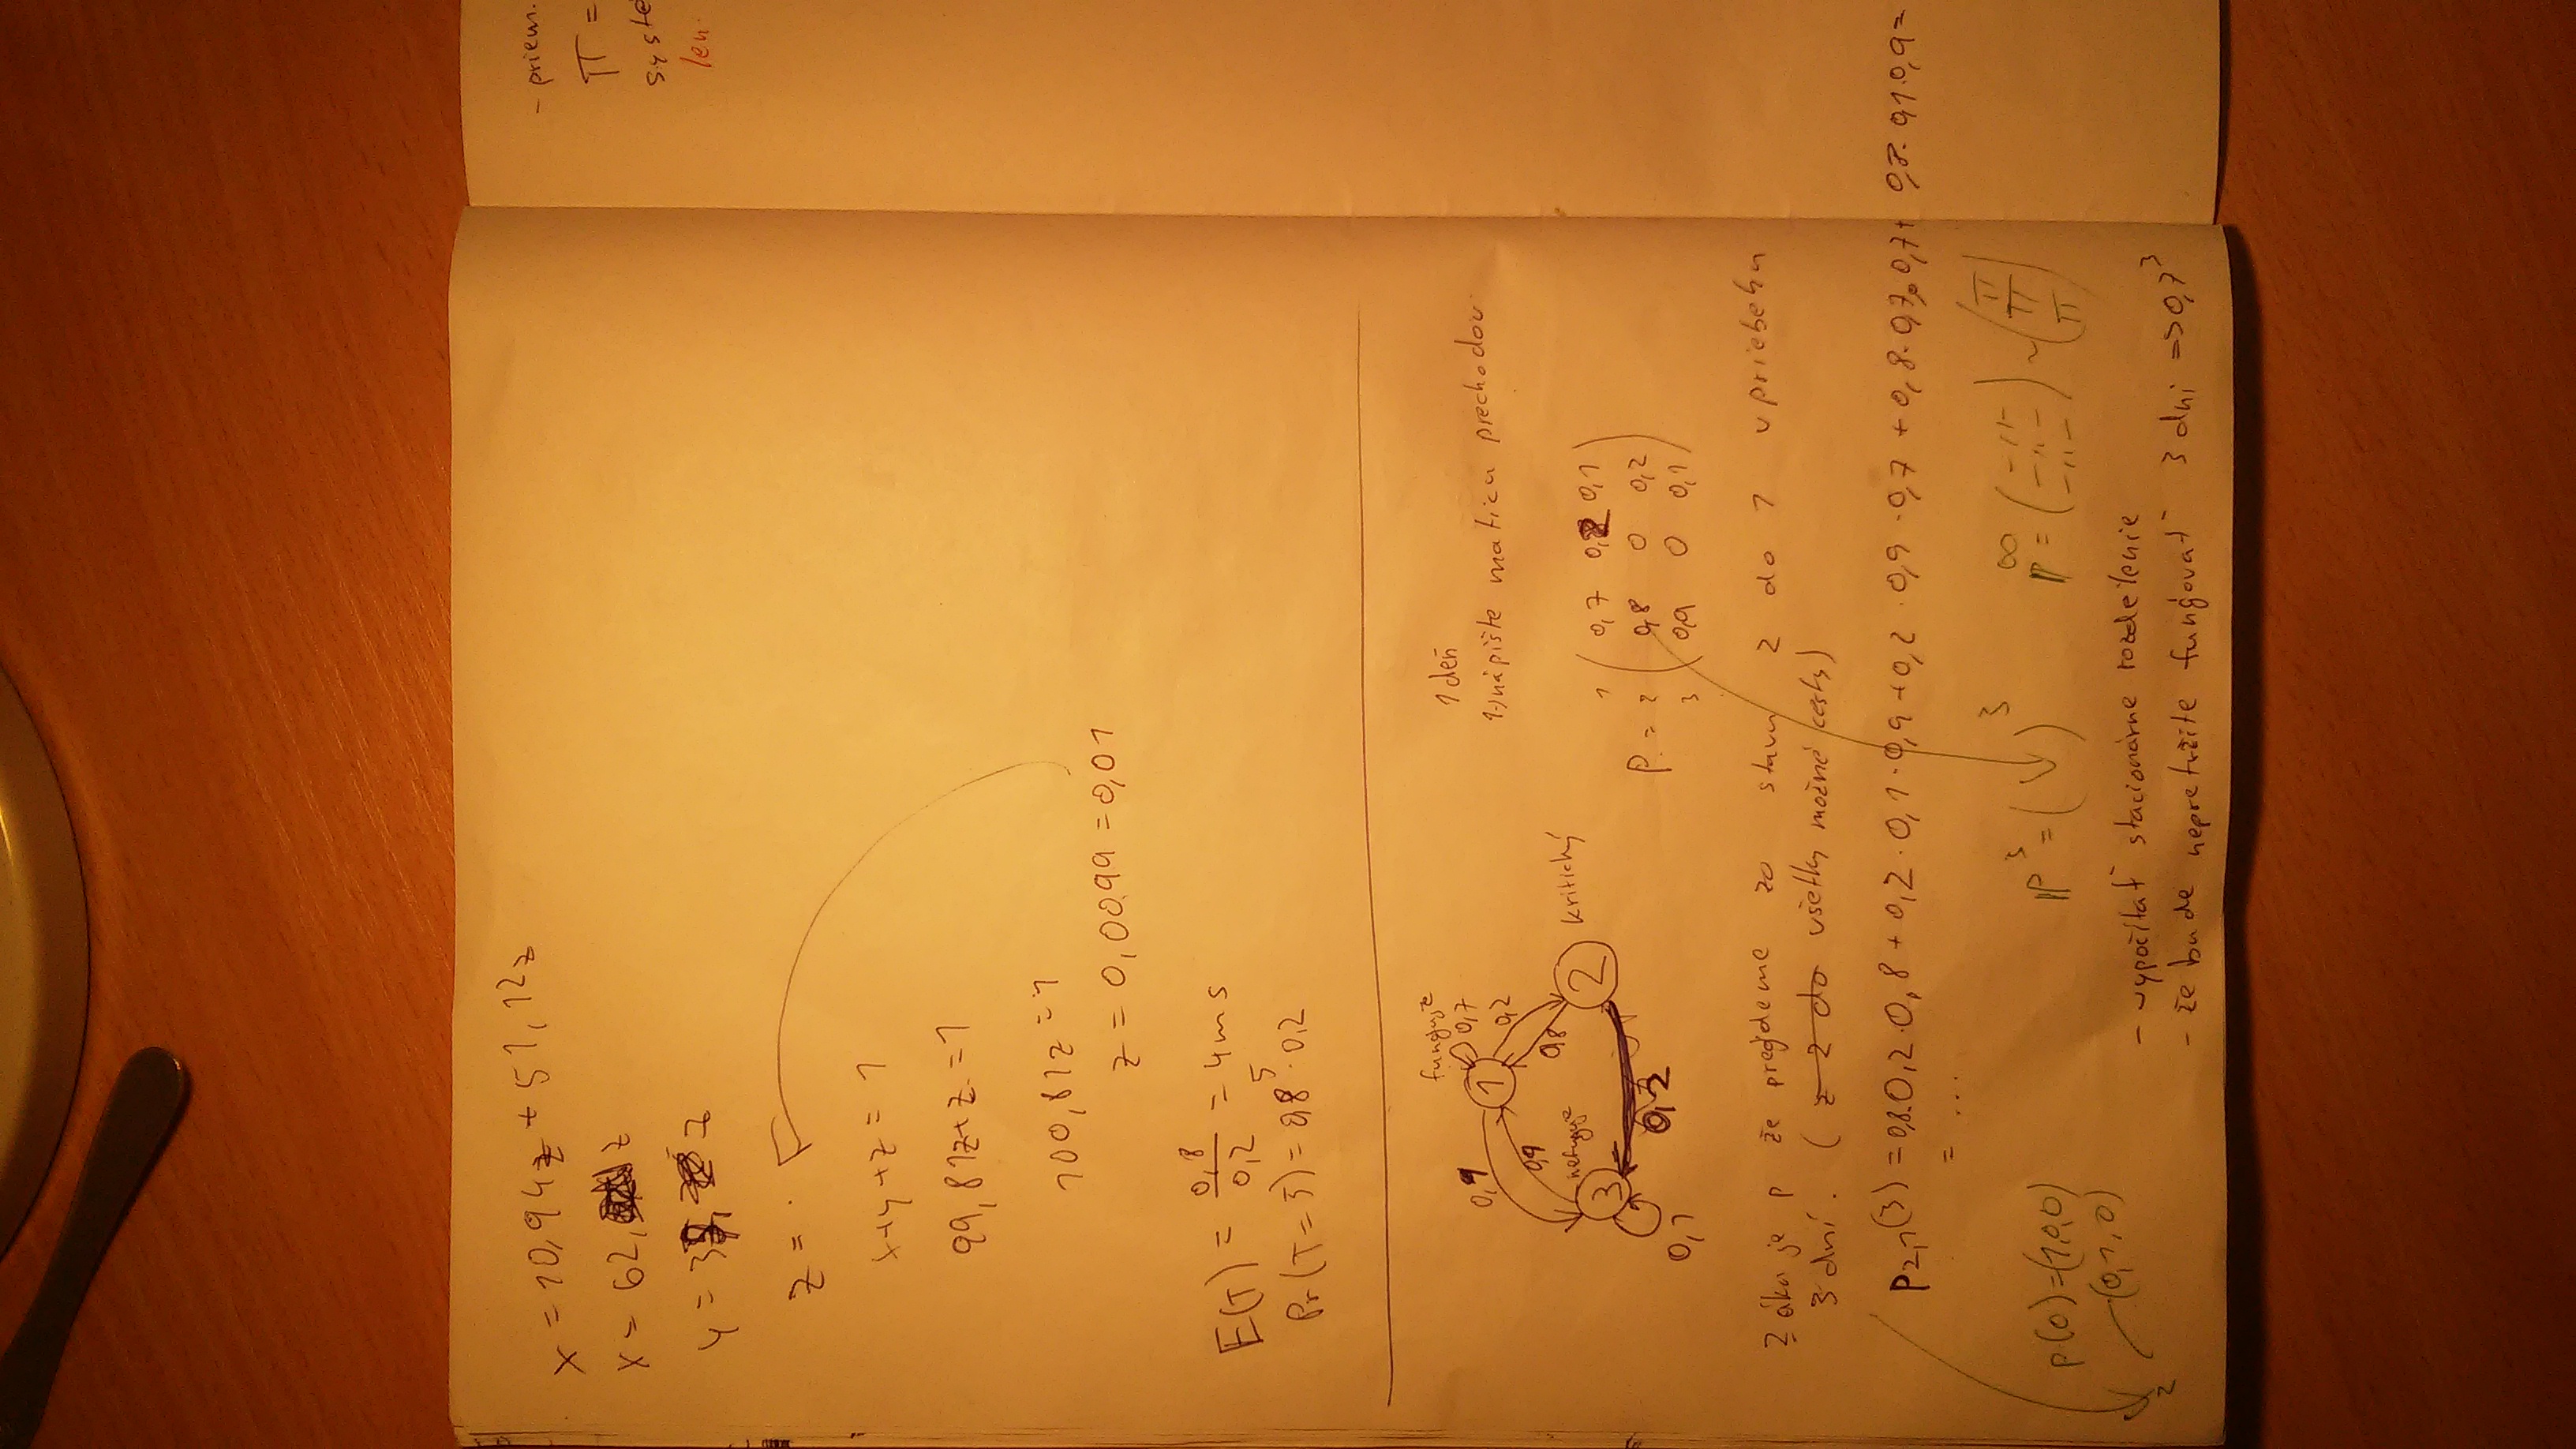 x = 10,94z + 51,12z
x = 62, z
y = 3 z
z = .
x+y+z = 1
99,81z+z = 1
100,81z = 1
z = 0,0099 = 0,01
E(T) = 0,8/0,2 = 4ms
Pr(T=5) = 0,8⁵·0,2
funguje
0,7
0,2
0,9
0,8
1
2
3
kritický
0,1
0,2
1 deň
1.) nápište maticu prechodov
1 0,7 0,2 0,1
P = 2 0,8 0 0,2
3 0,9 0 0,1
2 áka je p že prejdeme zo stavu 2 do 1 v priebehu
3 dní. (z 2 do všetky možné cesty)
p2,1(3) = 0,8·0,2·0,8 + 0,2·0,1·0,9 + 0,2·0,9·0,7 + 0,8·0,7·0,7 + 0,8·0,1·0,9 =
= ...
p(0) = (1,0,0)
(0,1,0)
2
P³ = ( )³
P^∞ = ( -"- -"- -"- ) ~ ( π π π )
- vypočítať stacionárne rozdelenie
- že bude nepretržite fungovať 3 dni => 0,7³
- priem.
π =
systé
len